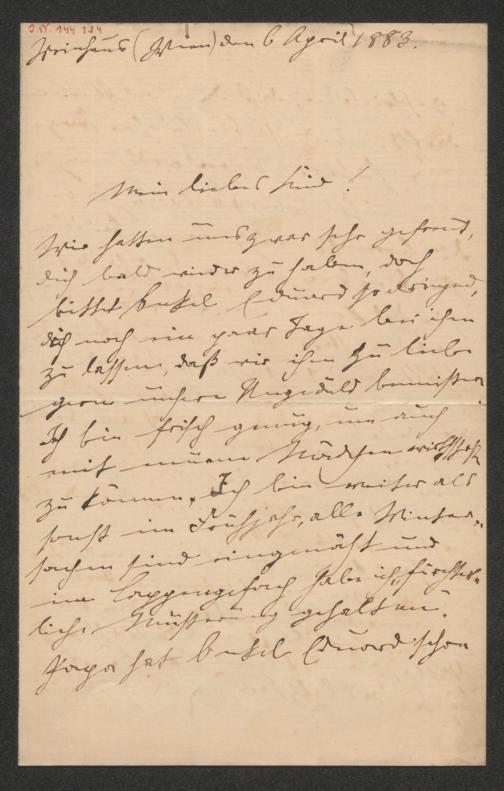 I.N. 144.134
Weinhaus (Wien) den 6 April 1883.
Mein liebes Kind!
Wir hatten uns zwar sehr gefreut,
dich bald wieder zu haben, doch
bittet Onkel Eduard so dringend,
dich noch ein paar Tage bei ihm
zu lassen, daß wir ihm zu liebe
gern unsere Ungeduld bemeistern.
Ich bin frisch genug, um auch
mit neuem Mädchen
zu können. Ich bin weiter als
sonst im Frühjahr, alle Winter-
sachen sind eingenäht und
im Lappengefach habe ich fürchter-
liche Musterung gehalten.
Papa hat Onkel Eduard schon